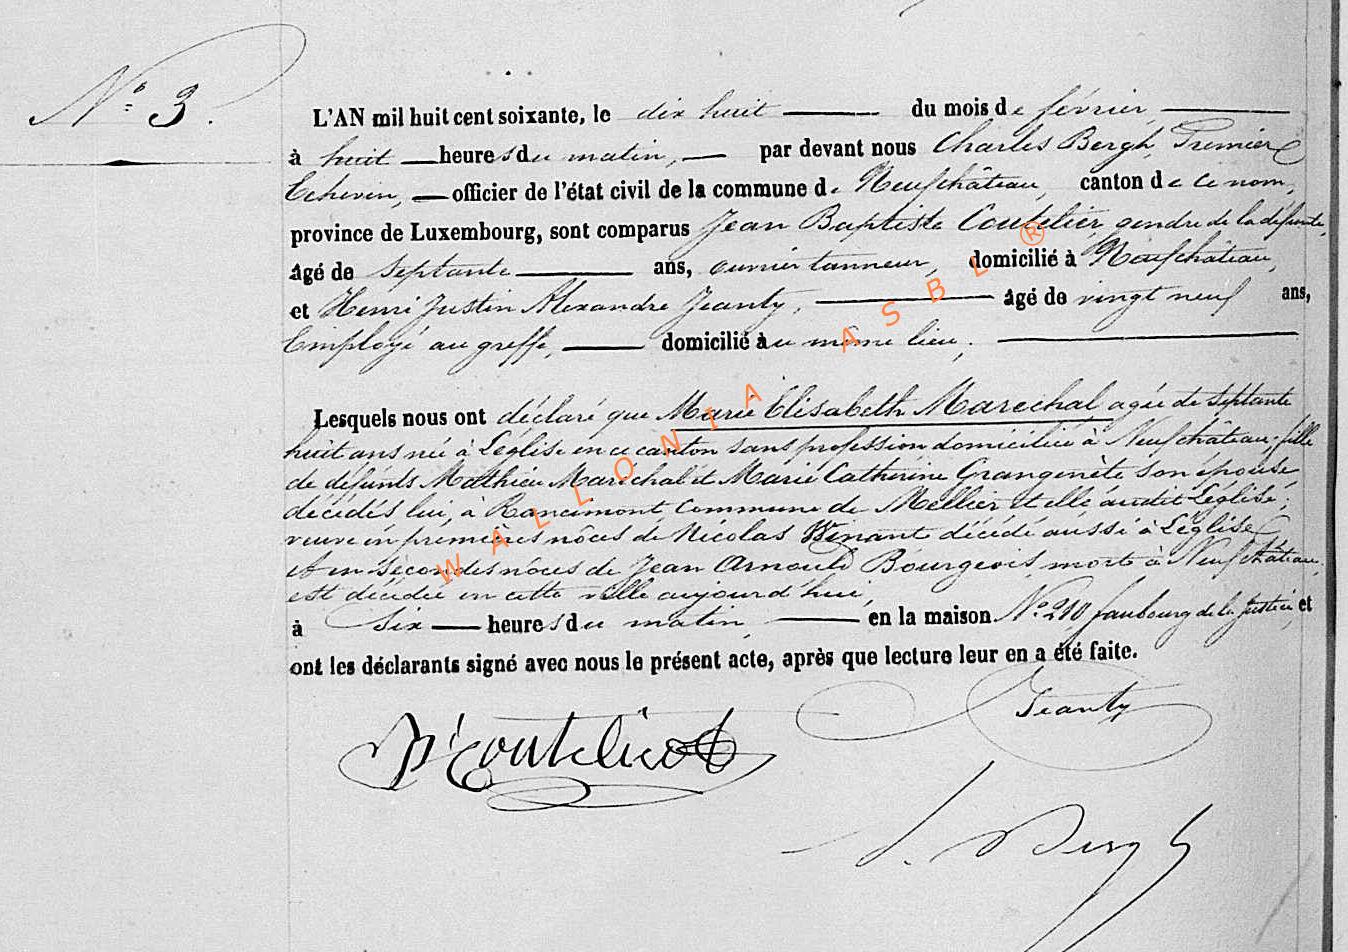 N° 3.
L'AN mil huit cent soixante, le dix huit du mois de février,
à huit heures du matin, par devant nous Charles Bergh, Premier
Echevin, officier de l'état civil de la commune de Neufchâteau, canton de ce nom,
province de Luxembourg, sont comparus Jean Baptiste Coutelier, gendre de la défunte,
âgé de septante ans, ouvrier tanneur, domicilié à Neufchâteau,
et Henri Justin Alexandre Jeanty, âgé de vingt neuf ans,
Employé au greffe, domicilié au même lieu;
Lesquels nous ont déclaré que Marie Elisabeth Marechal agée de septante
huit ans née à Léglise en ce canton sans profession domiciliée à Neufchâteau, fille
de défunts Mathieu Maréchal et Marie Catherine Grangenète son épouse
décédés lui, à Rancimont Commune de Mellier et elle audit Léglise;
veuve en premières nôces de Nicolas Winant décédé aussi à Léglise
et en secondes noces de Jean Arnould Bourgeois mort à Neufchâteau,
est décédée en cette ville aujourd'hui,
à six heures du matin, en la maison N° 210 faubourg de la Justice, et
ont les déclarants signé avec nous le présent acte, après que lecture leur en a été faite.
Jeanty
Coutelier
Bergh
WALLONIA ASBL ®